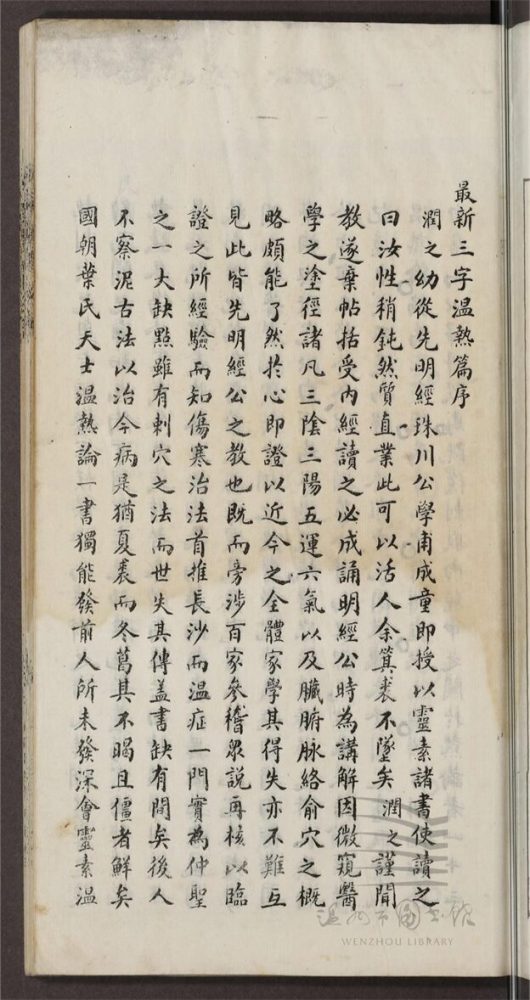 最新三字溫熱篇序
潤之幼從先明經珠川公學甫成童即授以靈素諸書使讀之
曰汝性稍鈍然質直業此可以活人余箕裘不墜矣潤之謹聞
教遂棄帖括受內經讀之必成誦明經公時為講解因微窺醫
學之塗徑諸凡三陰三陽五運六氣以及臟腑脉絡俞穴之概
略頗能了然於心即證以近今之全體家學其得失亦不難互
見此皆先明經公之教也既而旁涉百家參稽眾說再核以臨
證之所經驗而知傷寒治法首推長沙而溫症一門實為仲聖
之一大缺點雖有刺穴之法而世失其傳盖書缺有間矣後人
不察泥古法以治今病是猶夏裘而冬葛其不暍且僵者鮮矣
國朝葉氏天士溫熱論一書獨能發前人所未發深會靈素溫
溫州市圖書館
WENZHOU LIBRARY